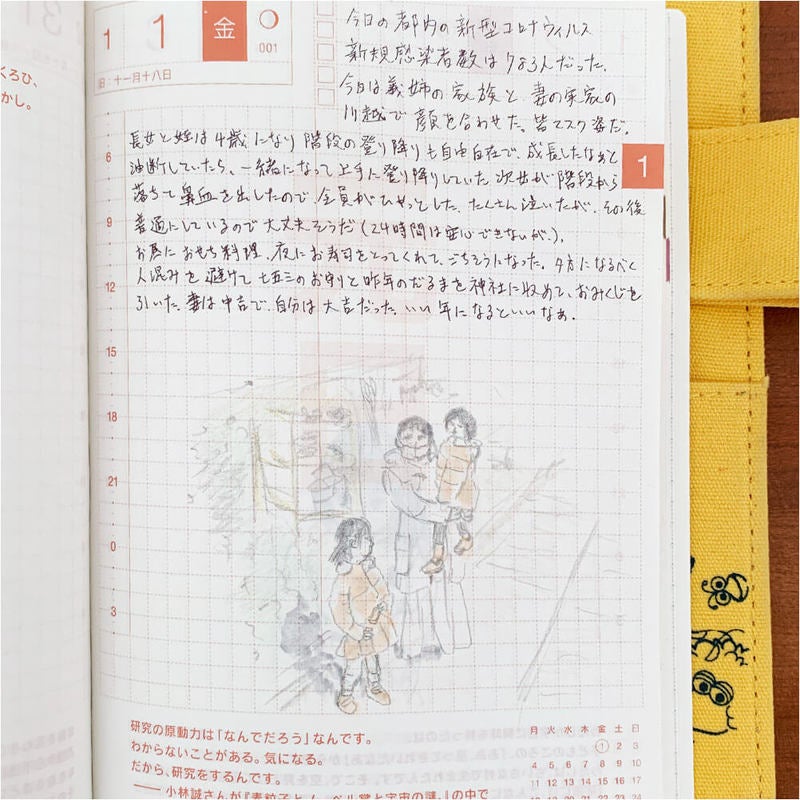 31
くろひ、
かし。
1 1 金 001
旧・十一月十八日
今日の都内の新型コロナウィルス
新規感染者数は783人だった。
今日は義姉の家族と、妻の実家の
川越で顔を合わせた。皆マスク姿だ。
長女と姪は4歳になり階段の登り降りも自由自在で、成長したなぁと
油断していたら、一緒になって上手に登り降りしていた次女が階段から
落ちて鼻血を出したので全員がひやっとした。たくさん泣いたが、その後
普通にしているので大丈夫そうだ(24時間は安心できないが。)。
お昼におせち料理、夜にお寿司をとってくれて、ごちそうになった。夕方になるべく
人混みを避けて七五三のお守りと昨年のだるまを神社に収めて、おみくじを
引いた。妻は中吉で、自分は大吉だった。いい年になるといいなぁ。
1
6
9
12
15
18
21
0
3
研究の原動力は「なんでだろう」なんです。
わからないことがある。気になる。
だから、研究をするんです。
—— 小林誠さんが『素粒子とノーベル賞と宇宙の謎。』の中で
月 火 水 木 金 土 日
1 2 3
4 5 6 7 8 9 10
11 12 13 14 15 16 17
18 19 20 21 22 23 24